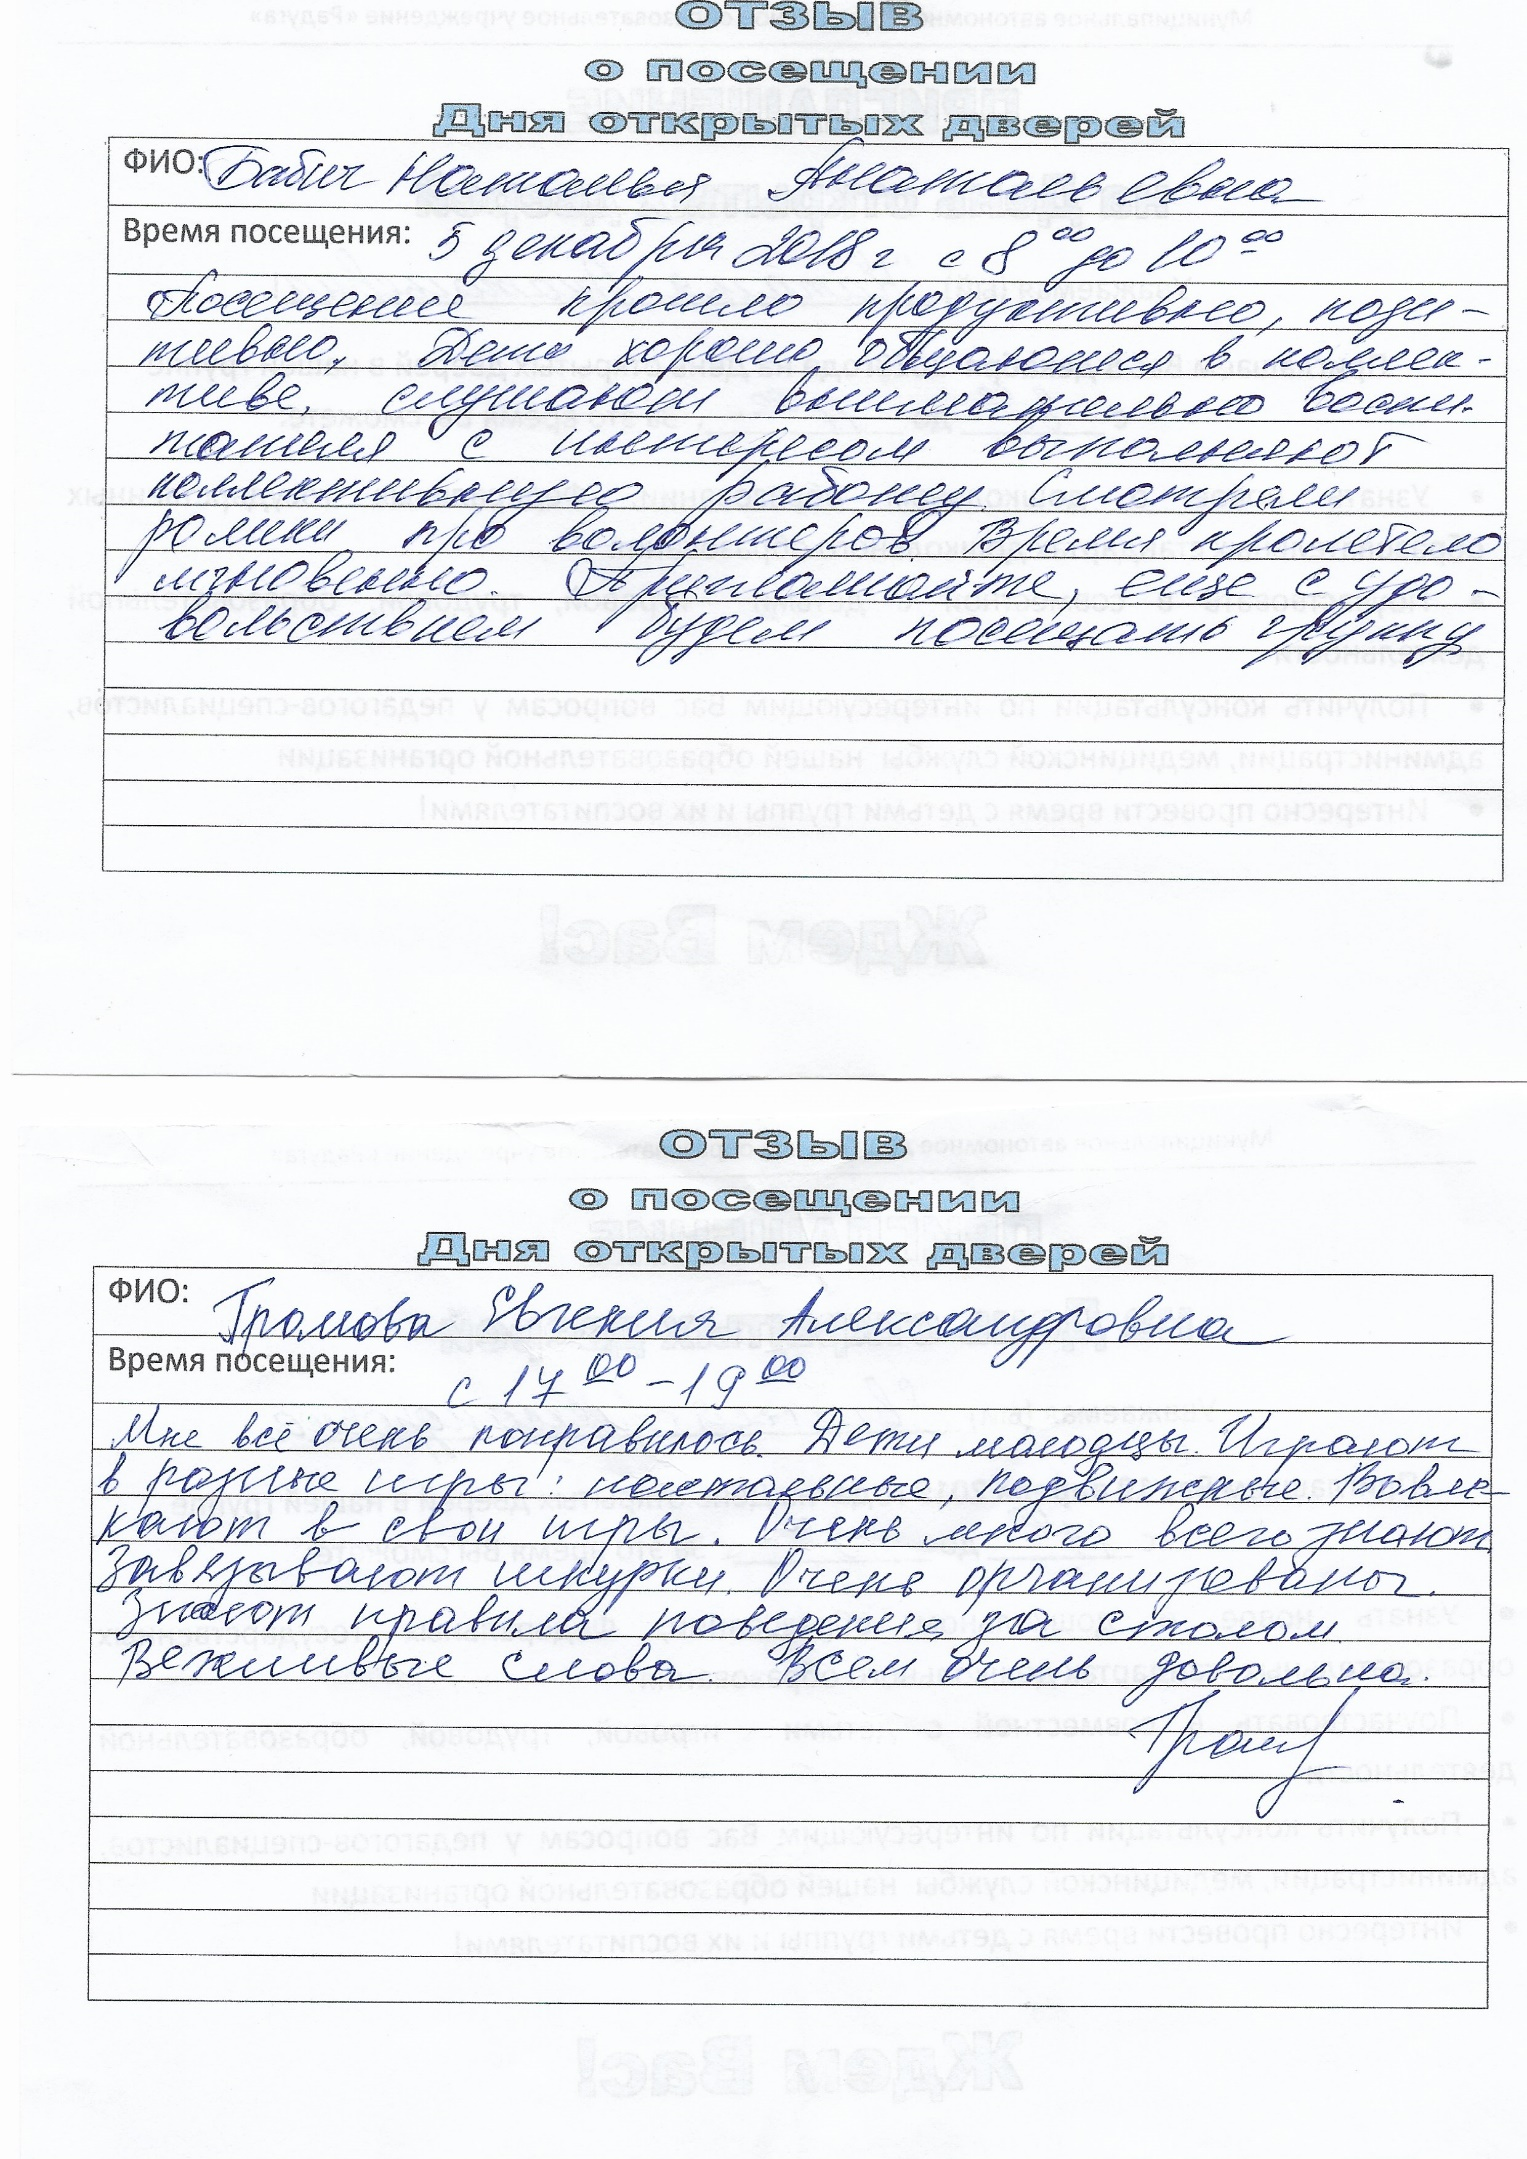 ОТЗЫВ
о посещении
Дня открытых дверей
ФИО: Бабич Наталья Анатольевна
Время посещения: 5 декабря 2018 г с 8 00 до 10 00
Посещение прошло продуктивно, пози-
тивно, Дети хорошо общаются в коллек-
тиве, слушают внимательно воспи-
тателя с интересом выполняют
коллективную работу. Смотрели
ролики про волонтеров. Время пролетело
мгновенно. Приглашайте, еще с удо-
вольствием будем посещать группу
Ждем Вас!
ОТЗЫВ
о посещении
Дня открытых дверей
ФИО: Громова Евгения Александровна
Время посещения: с 17 00 - 19 00
Мне всё очень понравилось. Дети молодцы. Играют
в разные игры: настольные, подвижные. Вовле-
кают в свои игры. Очень много всего знают.
Завязывают шнурки. Очень организованы.
Знают правила поведения за столом.
Вежливые слова. Всем очень довольна.
Ждем Вас!